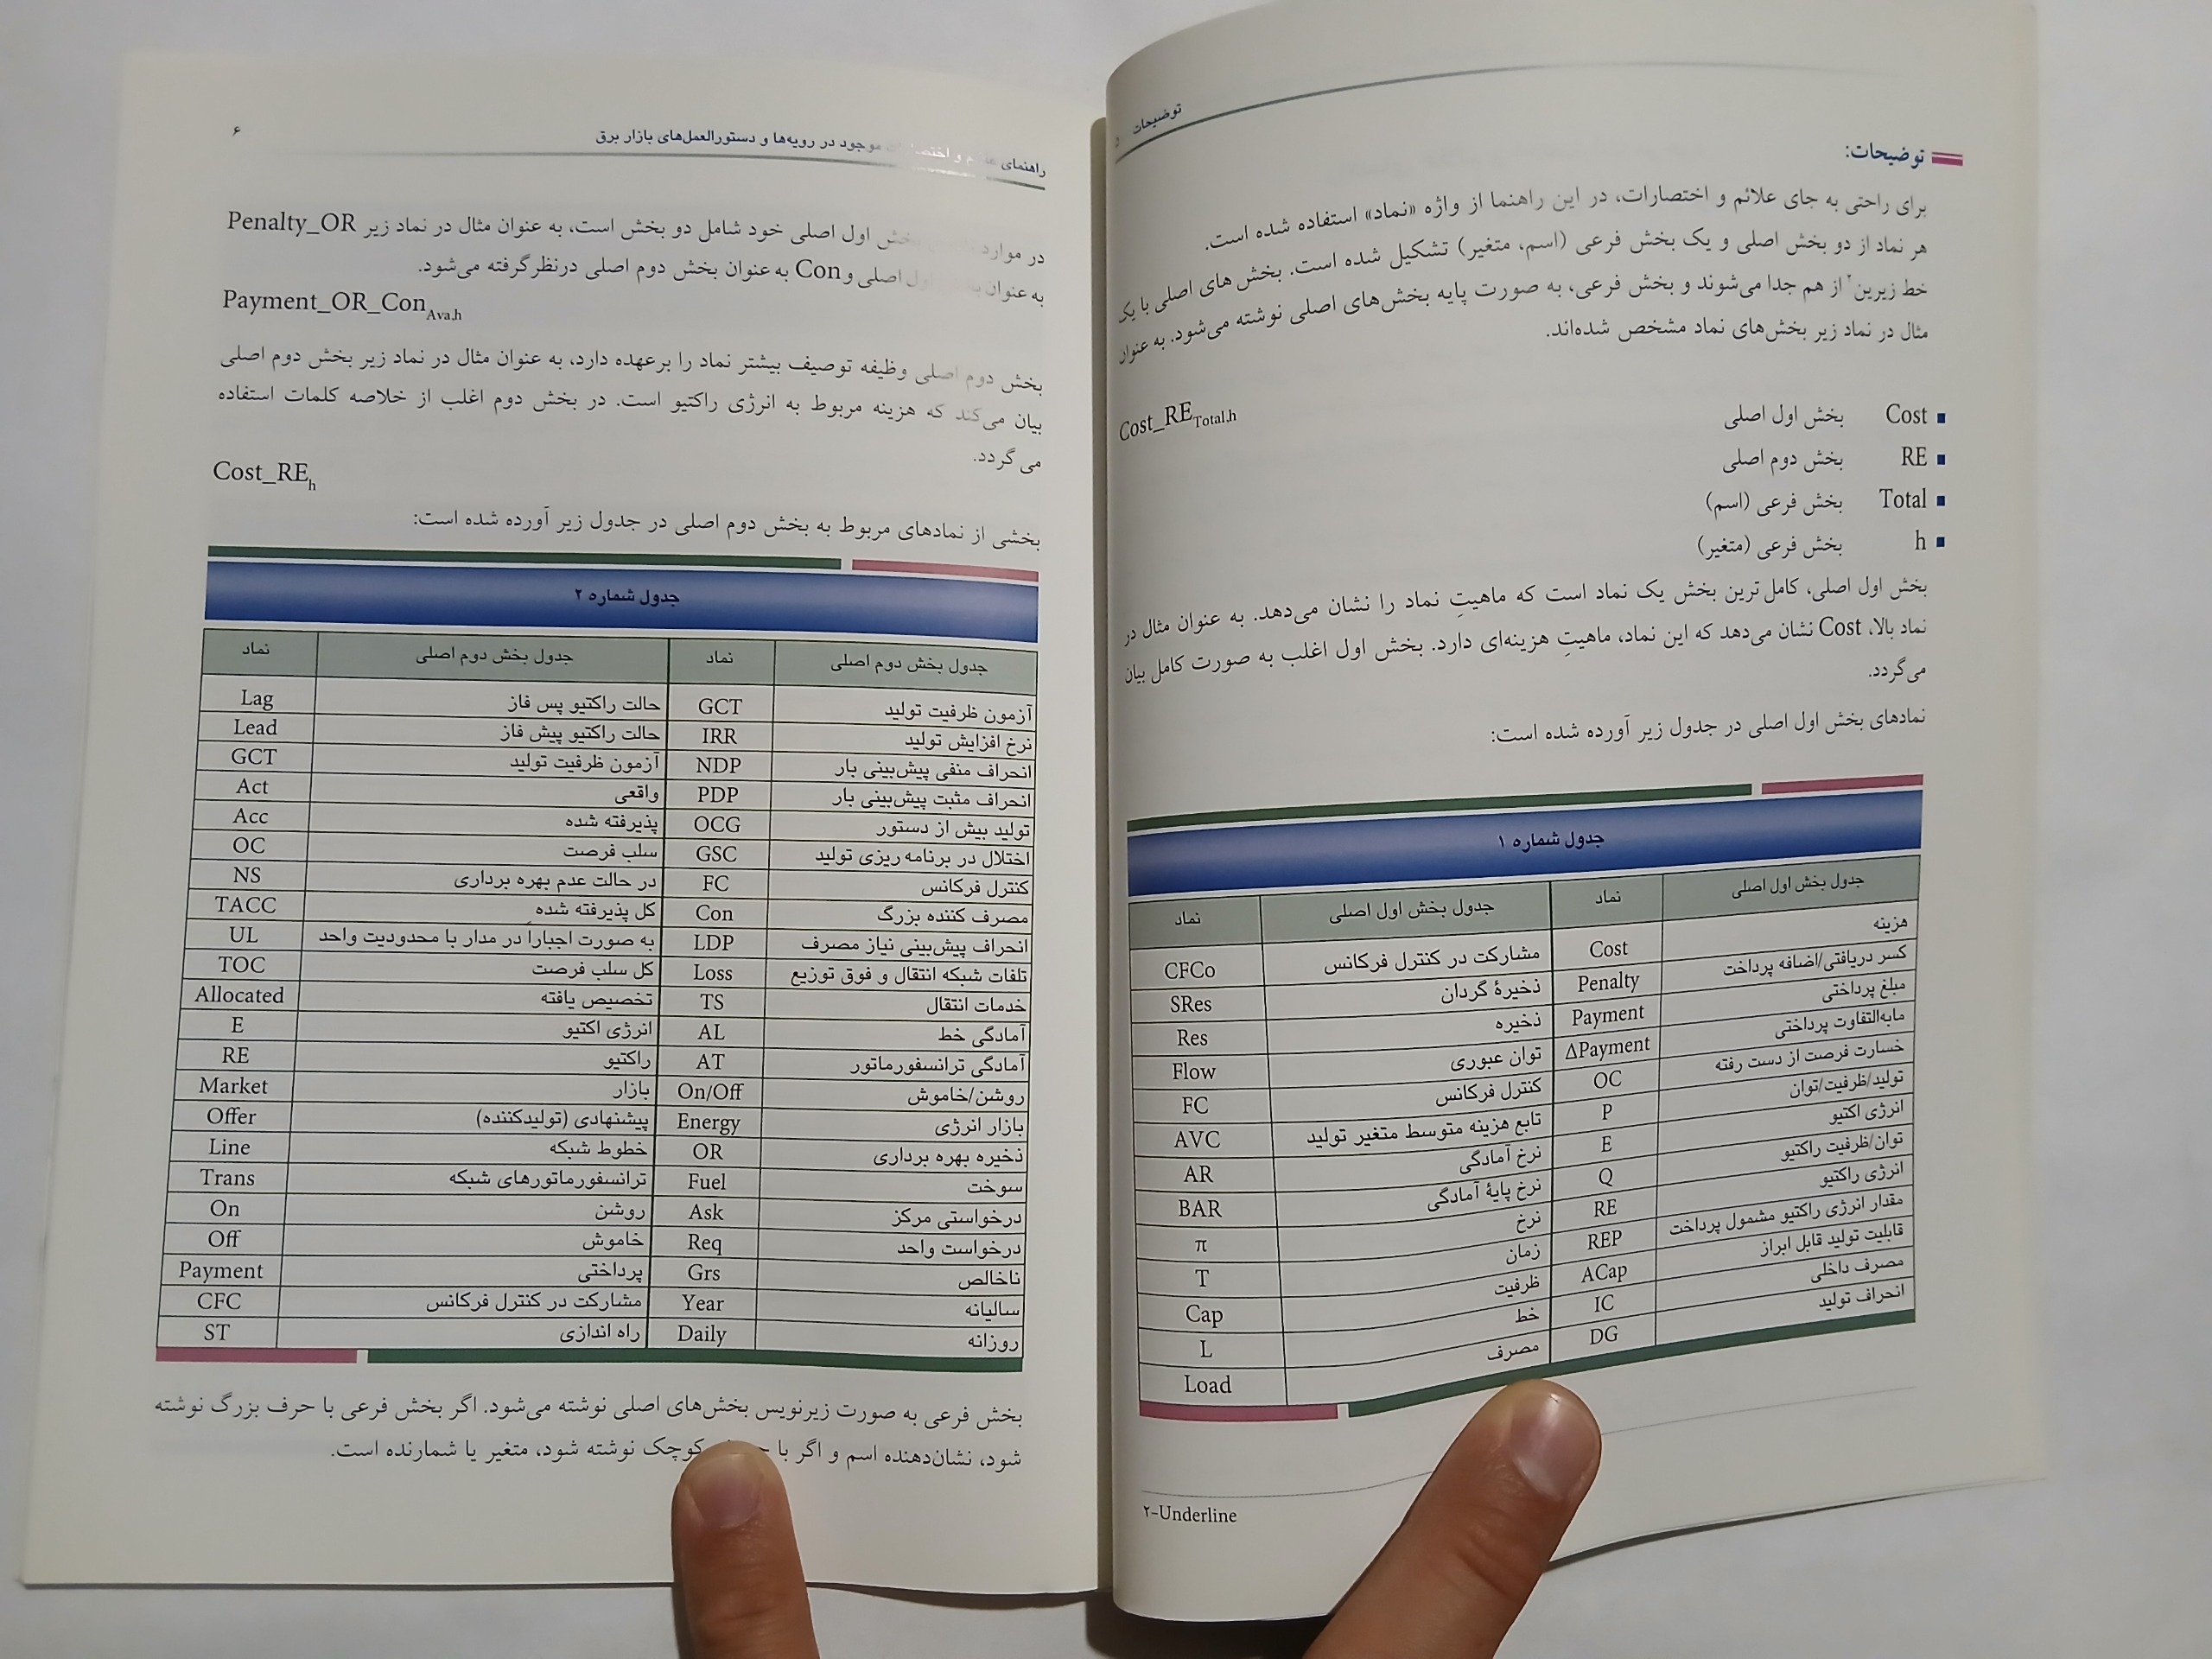 توضیحات
توضیحات:
برای راحتی به جای علائم و اختصارات، در این راهنما از واژه «نماد» استفاده شده است.
هر نماد از دو بخش اصلی و یک بخش فرعی (اسم، متغیر) تشکیل شده است. بخش های اصلی با یک
خط زیرین۲ از هم جدا می‌شوند و بخش فرعی، به صورت پایه بخش‌های اصلی نوشته می‌شود. به عنوان
مثال در نماد زیر بخش‌های نماد مشخص شده‌اند.
Cost_RE Total.h
Cost بخش اول اصلی
RE بخش دوم اصلی
Total بخش فرعی (اسم)
h بخش فرعی (متغیر)
بخش اول اصلی، کامل ترین بخش یک نماد است که ماهیتِ نماد را نشان می‌دهد. به عنوان مثال در
نماد بالا، Cost نشان می‌دهد که این نماد، ماهیتِ هزینه‌ای دارد. بخش اول اغلب به صورت کامل بیان
می‌گردد.
نمادهای بخش اول اصلی در جدول زیر آورده شده است:
جدول شماره ۱
جدول بخش اول اصلی نماد جدول بخش اول اصلی نماد
هزینه Cost مشارکت در کنترل فرکانس CFCo
کسر دریافتی/اضافه پرداخت Penalty ذخیرهٔ گردان SRes
مبلغ پرداختی Payment ذخیره Res
مابه‌التفاوت پرداختی ΔPayment توان عبوری Flow
خسارت فرصت از دست رفته OC کنترل فرکانس FC
تولید/ظرفیت/توان P تابع هزینه متوسط متغیر تولید AVC
انرژی اکتیو E نرخ آمادگی AR
توان/ظرفیت راکتیو Q نرخ پایهٔ آمادگی BAR
انرژی راکتیو RE نرخ π
مقدار انرژی راکتیو مشمول پرداخت REP زمان T
قابلیت تولید قابل ابراز ACap ظرفیت Cap
مصرف داخلی IC خط L
انحراف تولید DG مصرف Load
۲-Underline
راهنمای و اختصارات موجود در رویه‌ها و دستورالعمل‌های بازار برق ۶
در موارد بخش اول اصلی خود شامل دو بخش است، به عنوان مثال در نماد زیر Penalty_OR
به عنوان بخش اول اصلی و Con به عنوان بخش دوم اصلی درنظرگرفته می‌شود.
Payment_OR_Con Ava.h
بخش دوم اصلی وظیفه توصیف بیشتر نماد را برعهده دارد، به عنوان مثال در نماد زیر بخش دوم اصلی
بیان می‌کند که هزینه مربوط به انرژی راکتیو است. در بخش دوم اغلب از خلاصه کلمات استفاده
می گردد.
Cost_RE h
بخشی از نمادهای مربوط به بخش دوم اصلی در جدول زیر آورده شده است:
جدول شماره ۲
جدول بخش دوم اصلی نماد جدول بخش دوم اصلی نماد
آزمون ظرفیت تولید GCT حالت راکتیو پس فاز Lag
نرخ افزایش تولید IRR حالت راکتیو پیش فاز Lead
انحراف منفی پیش‌بینی بار NDP آزمون ظرفیت تولید GCT
انحراف مثبت پیش‌بینی بار PDP واقعی Act
تولید بیش از دستور OCG پذیرفته شده Acc
اختلال در برنامه ریزی تولید GSC سلب فرصت OC
کنترل فرکانس FC در حالت عدم بهره برداری NS
مصرف کننده بزرگ Con کل پذیرفته شده TACC
انحراف پیش‌بینی نیاز مصرف LDP به صورت اجباراً در مدار با محدودیت واحد UL
تلفات شبکه انتقال و فوق توزیع Loss کل سلب فرصت TOC
خدمات انتقال TS تخصیص یافته Allocated
آمادگی خط AL انرژی اکتیو E
آمادگی ترانسفورماتور AT راکتیو RE
روشن/خاموش On/Off بازار Market
بازار انرژی Energy پیشنهادی (تولیدکننده) Offer
ذخیره بهره برداری OR خطوط شبکه Line
سوخت Fuel ترانسفورماتورهای شبکه Trans
درخواستی مرکز Ask روشن On
درخواست واحد Req خاموش Off
ناخالص Grs پرداختی Payment
سالیانه Year مشارکت در کنترل فرکانس CFC
روزانه Daily راه اندازی ST
بخش فرعی به صورت زیرنویس بخش‌های اصلی نوشته می‌شود. اگر بخش فرعی با حرف بزرگ نوشته
شود، نشان‌دهنده اسم و اگر با کوچک نوشته شود، متغیر یا شمارنده است.